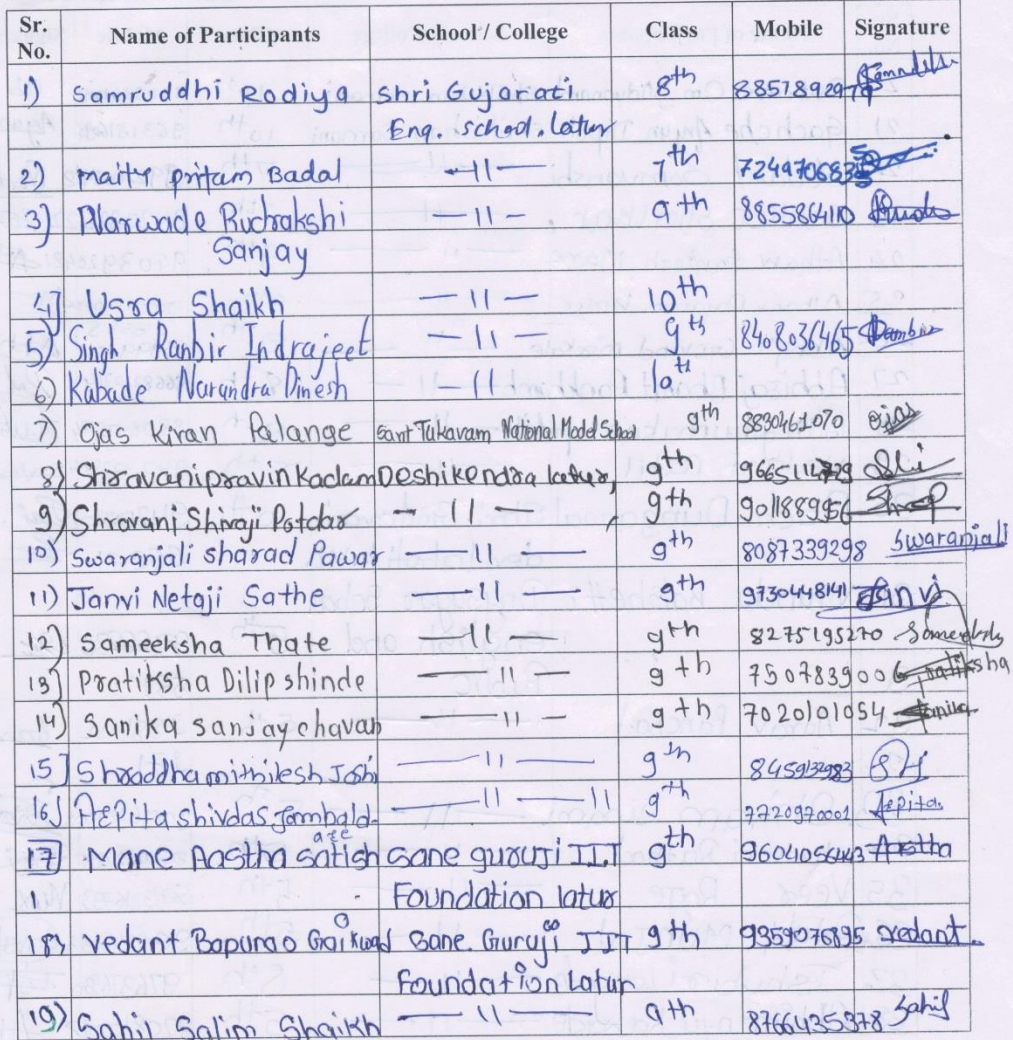 Sr. No. Name of Participants School / College Class Mobile Signature
1) Samruddhi Rodiya Shri Gujarati 8th
Eng. school. latur
2) maity pritam Badal -11- 7th 724970683
3) Alarwade Rudrakshi -11- 9th 8855864110
Sanjay
4) Usra Shaikh -11- 10th
5) Singh Ranbir Indrajeet -11- 9th 8408036465
6) Kabade Narandra Dinesh -11- 10th
7) Ojas Kiran Palange Sant Tukavam National Model School 9th 8830461070 ojas
8) Shravani pravin Kadam Deshikendra latur, 9th
9) Shravani Shivaj Potdar - 11 - , 9th
10) Swaranjali sharad Pawar -11- 9th 8087339298 Swaranjali
11) Janvi Netaji Sathe -11- 9th 9730448141 Janvi
12) Sameeksha Thate -11- 9th 8275195270 Sameeksha
13) Pratiksha Dilip shinde -11- 9th 7507839006 Pratiksha
14) Sanika sanjay chavan -11- 9th 7020101054 Sanika
15) Shraddha mithilesh Joshi -11- 9th 8459132983
16) Aepita shivdas Jambald -11- 11 9th 7720970002 Aepita.
17) Mane Aastha satish sane guruji I.I.T 9th 9604056443 Aastha
Foundation latur
18) vedant Bapurao Gaikwad Sane. Guruji IIT 9th 9359076895 vedant.
Foundation Latur
19) Sahil Salim Shaikh -11- 9th 8766435378 Sahil